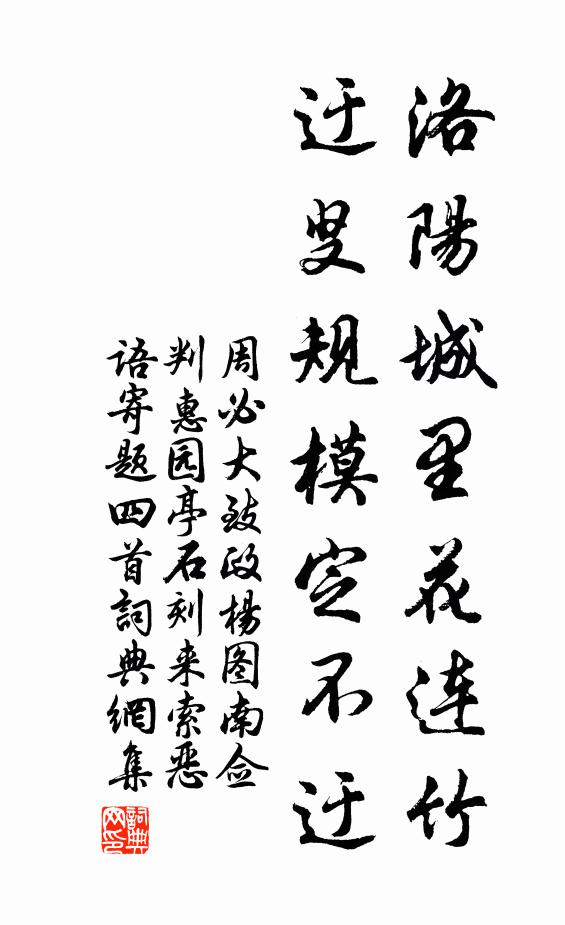 洛陽城里花連竹
迂叟規模定不迂
周必大致政楊图南佥
判惠园亭石刻来索恶
语寄题四首詞典網集
詞典
网印